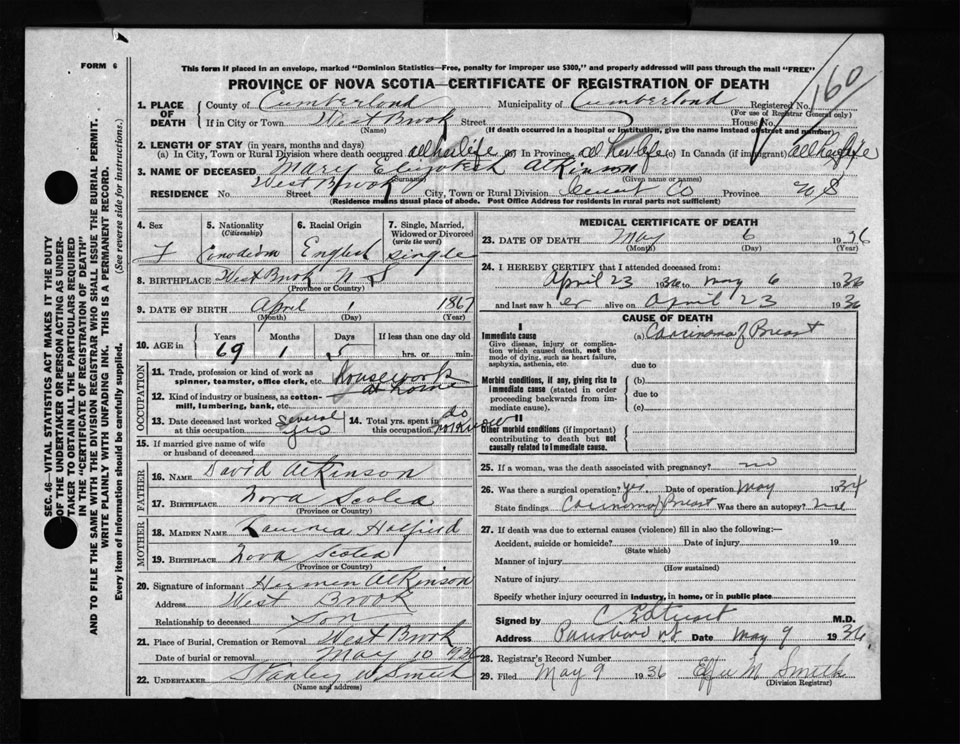 FORM 6
This form if placed in an envelope, marked "Dominion Statistics—Free, penalty for improper use $300," and properly addressed will pass through the mail "FREE"
PROVINCE OF NOVA SCOTIA—CERTIFICATE OF REGISTRATION OF DEATH
160
1. PLACE OF DEATH County of Cumberland Municipality of Cumberland Registered No.
(For use of Registrar General only)
If in City or Town West Brook Street House No.
(Name) (If death occurred in a hospital or institution, give the name instead of street and number)
2. LENGTH OF STAY (in years, months and days)
(a) In City, Town or Rural Division where death occurred all her life (b) In Province all her life (c) In Canada (if immigrant) all her life
3. NAME OF DECEASED Mary Elizabeth Atkinson
(Surname) (Given name or names)
RESIDENCE No. West Brook Street City, Town or Rural Division Co Province N S
(Residence means usual place of abode. Post Office Address for residents in rural parts not sufficient)
SEC. 46—VITAL STATISTICS ACT MAKES IT THE DUTY
OF THE UNDERTAKER OR PERSON ACTING AS UNDER-
TAKER TO OBTAIN ALL THE PARTICULARS REQUIRED
IN THE "CERTIFICATE OF REGISTRATION OF DEATH"
AND TO FILE THE SAME WITH THE DIVISION REGISTRAR WHO SHALL ISSUE THE BURIAL PERMIT.
(See reverse side for instructions.)
WRITE PLAINLY WITH UNFADING INK. THIS IS A PERMANENT RECORD.
Every item of information should be carefully supplied.
4. Sex 5. Nationality (Citizenship) 6. Racial Origin 7. Single, Married, Widowed or Divorced (write the word)
F Canadian English single
8. BIRTHPLACE West Brook N S
(Province or Country)
9. DATE OF BIRTH April 1 1867
(Month) (Day) (Year)
10. AGE in Years Months Days If less than one day old
69 1 5 hrs. or min.
OCCUPATION
11. Trade, profession or kind of work as spinner, teamster, office clerk, etc. Housework
12. Kind of industry or business, as cotton-mill, lumbering, bank, etc. at home
13. Date deceased last worked at this occupation Several yrs 14. Total yrs. spent in this occupation do not know
15. If married give name of wife or husband of deceased
FATHER
16. NAME David Atkinson
17. BIRTHPLACE Nova Scotia
(Province or Country)
MOTHER
18. MAIDEN NAME Hatfield
19. BIRTHPLACE Nova Scotia
(Province or Country)
20. Signature of informant Hermen Atkinson
Address West Brook
Relationship to deceased Son
21. Place of Burial, Cremation or Removal West Brook
Date of burial or removal May 10 1936
22. UNDERTAKER Stanley W Smith
(Name and address)
MEDICAL CERTIFICATE OF DEATH
23. DATE OF DEATH May 6 1936
(Month) (Day) (Year)
24. I HEREBY CERTIFY that I attended deceased from:
April 23 1936 to May 6 1936
and last saw h er alive on April 23 1936
CAUSE OF DEATH
I
Immediate cause (a) Carcinoma of Breast
Give disease, injury or complication which caused death, not the mode of dying, such as heart failure, asphyxia, asthenia, etc.
due to
Morbid conditions, if any, giving rise to immediate cause (stated in order proceeding backwards from immediate cause).
(b)
due to
(c)
II
Other morbid conditions (if important) contributing to death but not causally related to immediate cause.
25. If a woman, was the death associated with pregnancy? no
26. Was there a surgical operation? Yes Date of operation May 1934
State findings Carcinoma of Breast Was there an autopsy? no
27. If death was due to external causes (violence) fill in also the following:—
Accident, suicide or homicide? Date of injury 19
(State which)
Manner of injury
(How sustained)
Nature of injury
Specify whether injury occurred in industry, in home, or in public place
Signed by M.D.
Address Parrsboro NS Date May 9 1936
28. Registrar's Record Number
29. Filed May 9 1936 Effie M Smith
(Division Registrar)